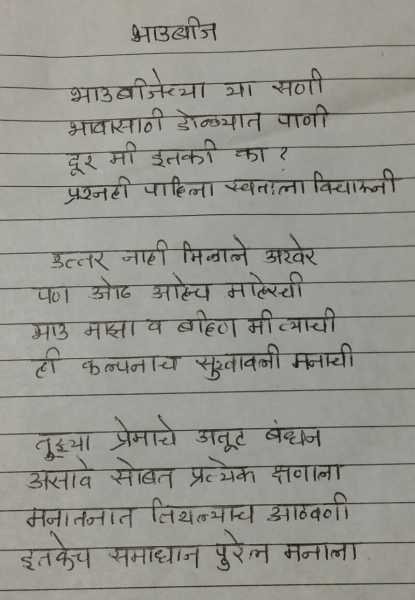 भाऊबीज
भाऊबीजेच्या या सणी
भावासाठी डोळ्यात पाणी
दूर मी इतकी का ?
प्रश्नही पाहिला स्वतःला विचारूनी
उत्तर नाही मिळाले अखेर
पण ओढ आहेच माहेरची
भाऊ माझा व बहिण मी त्याची
ही कल्पनाच सुखावनी मनाची
तुझ्या प्रेमाचे अतूट बंधन
असावे सोबत प्रत्येक क्षणाला
मनातनात तिथल्याच आठवणी
इतकेच समाधान पुरेल मनाला